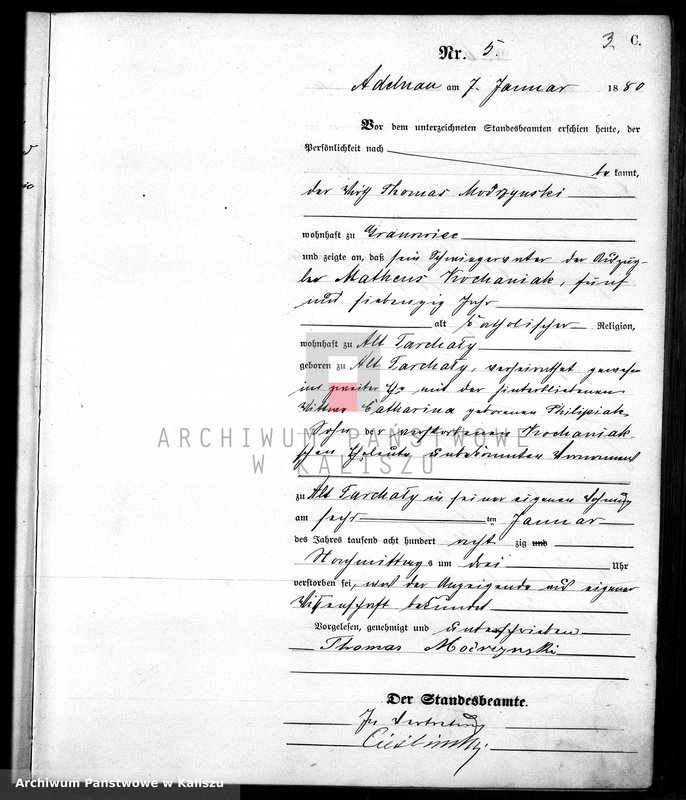 3 C.
Nr. 5.
Adelnau am 7. Januar 1880
Vor dem unterzeichneten Standesbeamten erschien heute, der
Persönlichkeit nach
be kannt,
der Wirth Thomas Modrzynski
wohnhaft zu
und zeigte an, daß sein Schwiegervater der Auszüg-
ler Matheus Kochaniak, fünf
und siebenzig Jahr
alt katholischer Religion,
wohnhaft zu Alt Tarchaly
geboren zu Alt Tarchaly, verheirathet gewesen
in zweiter Ehe mit der hinterbliebenen
Wittwe Catharina geborenen Philipiak,
Sohn der verstorbenen Kochaniak-
schen Eheleute unbekannten Vornamens
zu Alt Tarchaly in seiner eigenen Wohnung
am sechs ten Januar
des Jahres tausend acht hundert acht zig und
Nachmittags um drei Uhr
verstorben sei, was der Anzeigende aus eigener
Wissenschaft bekundet
Vorgelesen, genehmigt und unterschrieben
Thomas Modrzynski
Der Standesbeamte.
In Vertretung
ARCHIWUM PAŃSTWOWE
W KALISZU
Archiwum Państwowe w Kaliszu